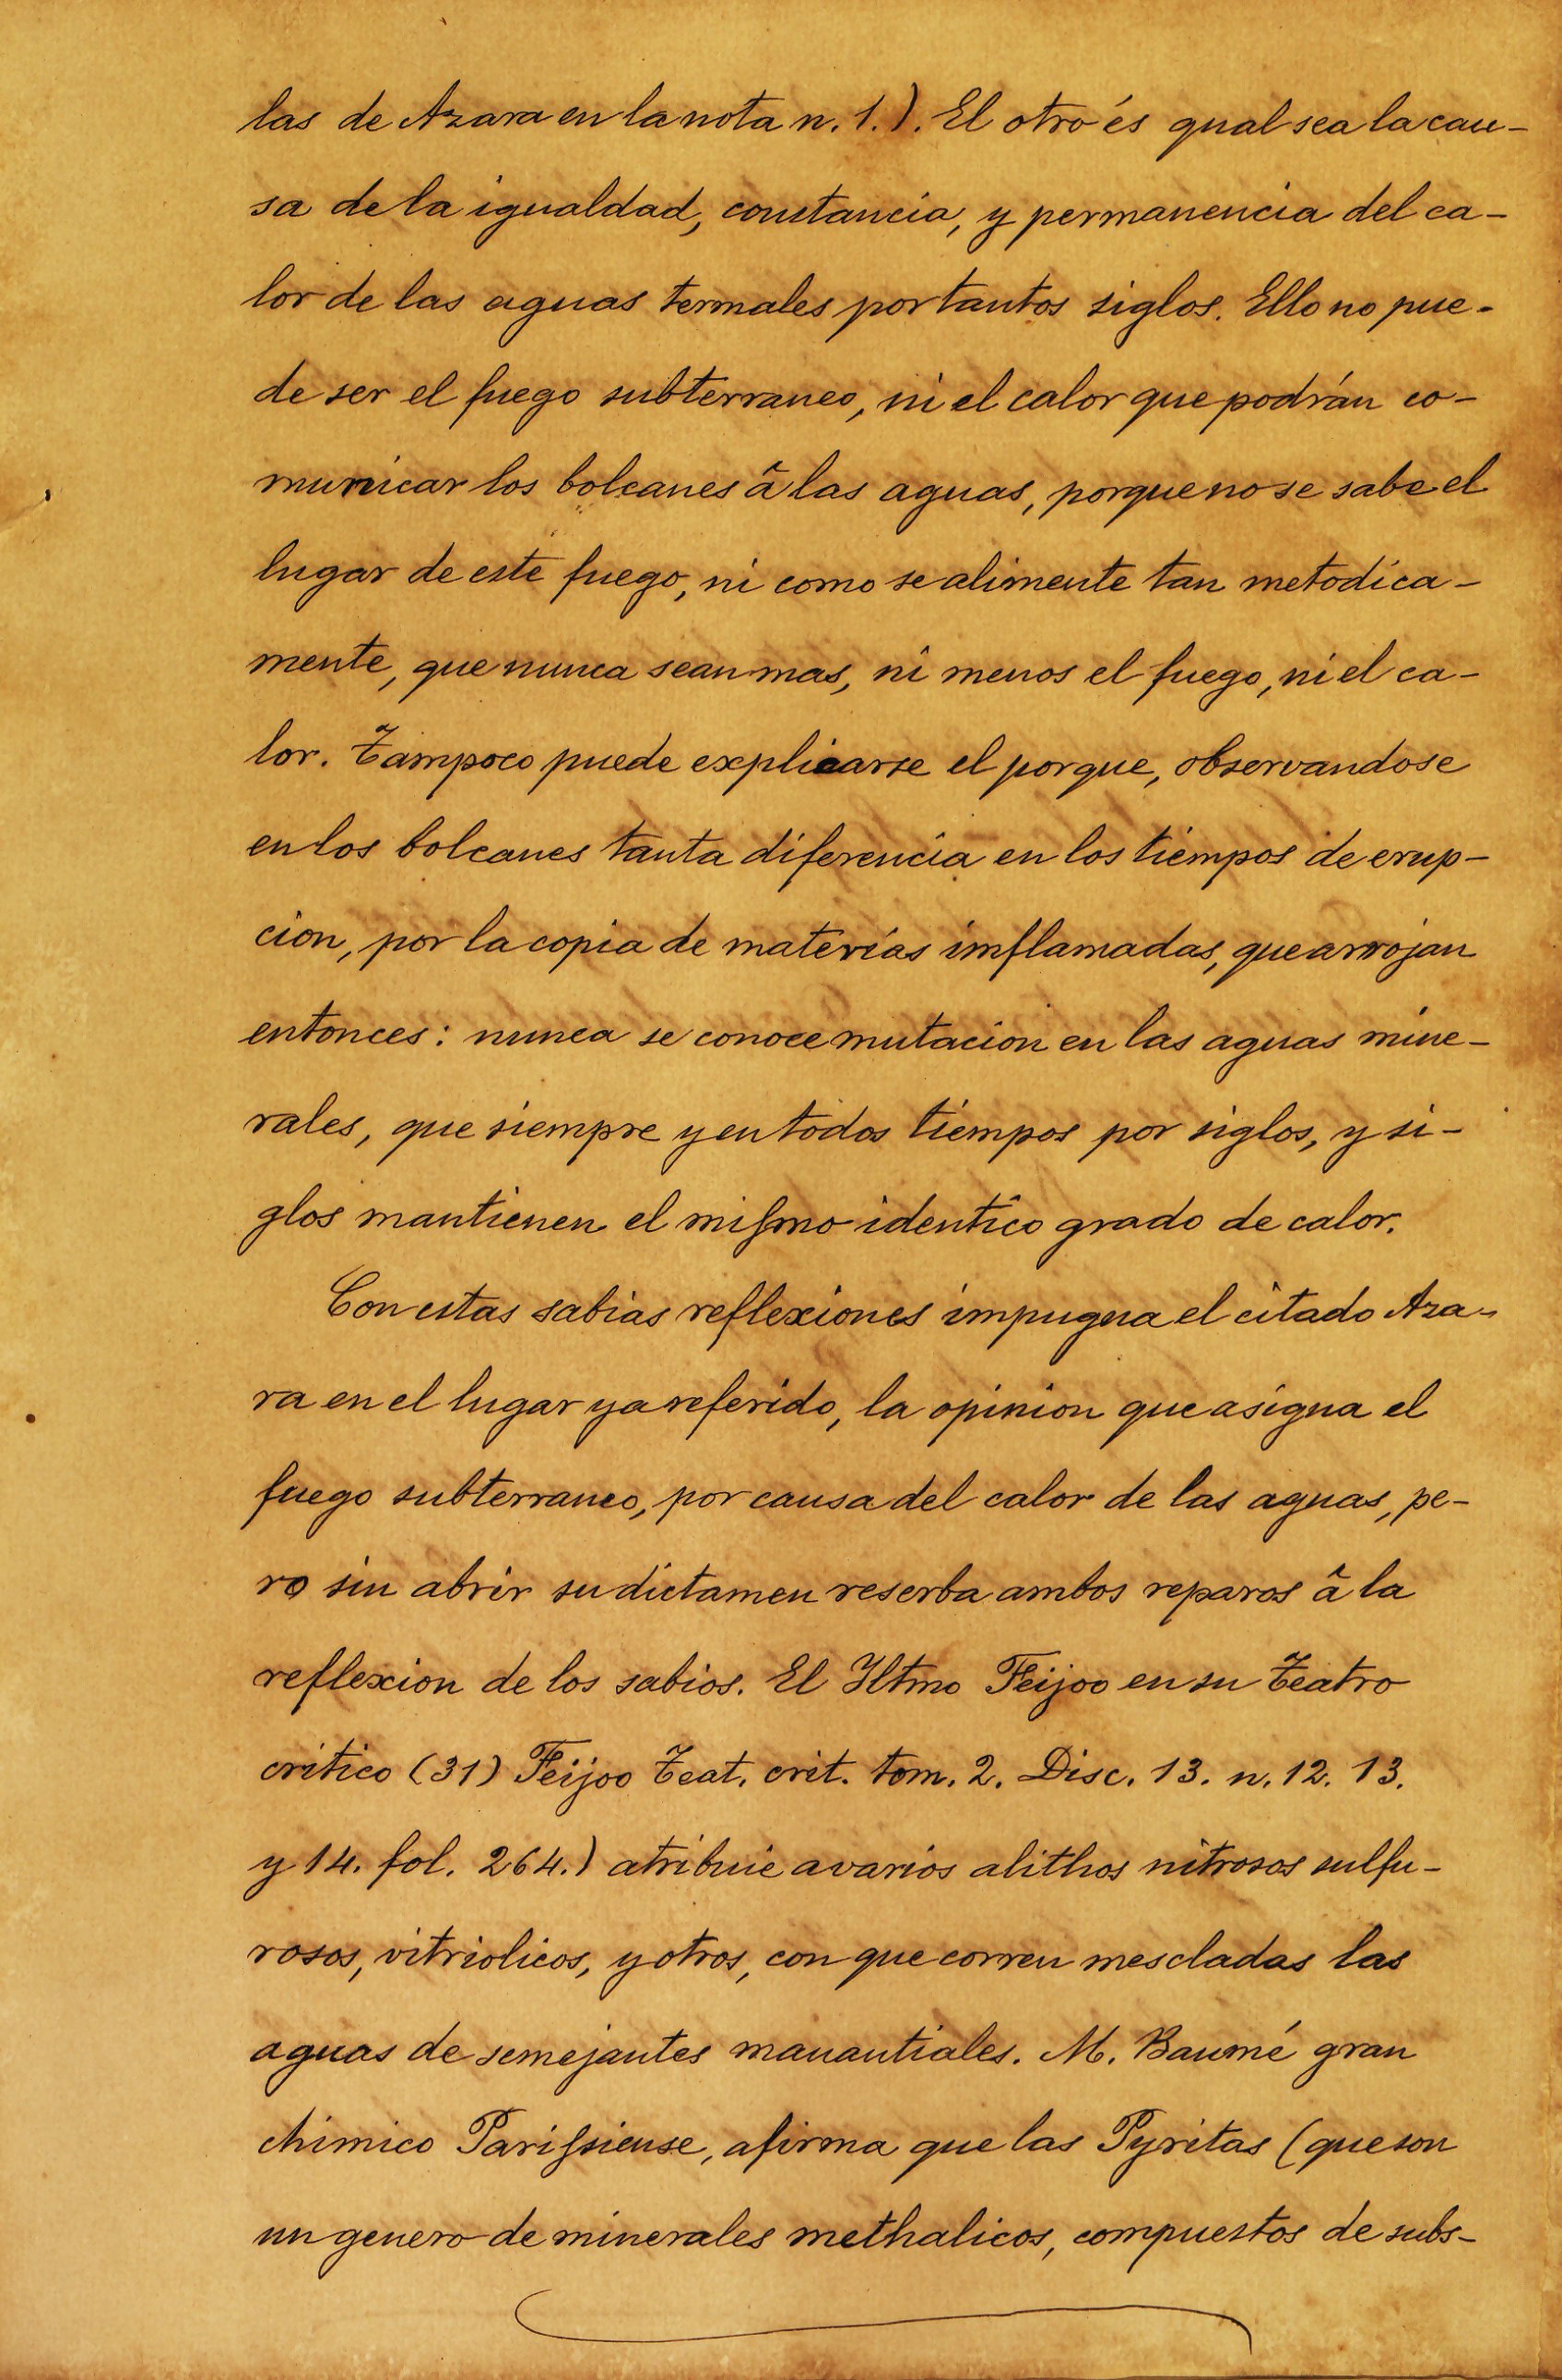 las de Azara en la nota n. 1.). El otro és qual sea la cau-
sa de la igualdad, constancia, y permanencia del ca-
lor de las aguas termales por tantos siglos. Ello no pue-
de ser el fuego subterraneo, ni el calor que podrán co-
municar los bolcanes â las aguas, porque no se sabe el
lugar de este fuego, ni como se alimente tan metodica-
mente, que nunca sean mas, ni menos el fuego, ni el ca-
lor. Tampoco puede explicarse el porque, observandose
en los bolcanes tanta diferencia en los tiempos de erup-
cion, por la copia de materias imflamadas, que arrojan
entonces: nunca se conoce mutacion en las aguas mine-
rales, que siempre y en todos tiempos por siglos, y si-
glos mantienen el miſmo identico grado de calor.
Con estas sabias reflexiones impugna el citado Aza-
ra en el lugar ya referido, la opinion que asigna el
fuego subterraneo, por causa del calor de las aguas, pe-
ro sin abrir su dictamen reserba ambos reparos â la
reflexion de los sabios. El Yltmo Feijoo en su Teatro
critico (31) Feijoo Teat. crit. tom. 2. Disc. 13. n. 12. 13.
y 14. fol. 264.) atribuie a varios alithos nitrosos sulfu-
rosos, vitriolicos, y otros, con que corren mescladas las
aguas de semejantes manantiales. M. Baumé gran
chimico Pariſsiense, afirma que las Pyritas (que son
un genero de minerales methalicos, compuestos de subs-